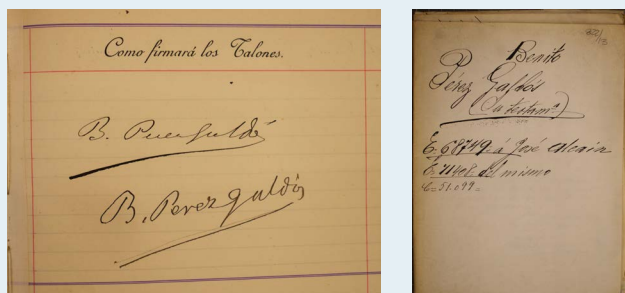 Como firmará los Talones.
B. Perezgaldós
B. Perez galdós
Benito
Pérez Galdós
(Su testam.ª)
E. 68749 á José Alcain
E. 71408 del mismo